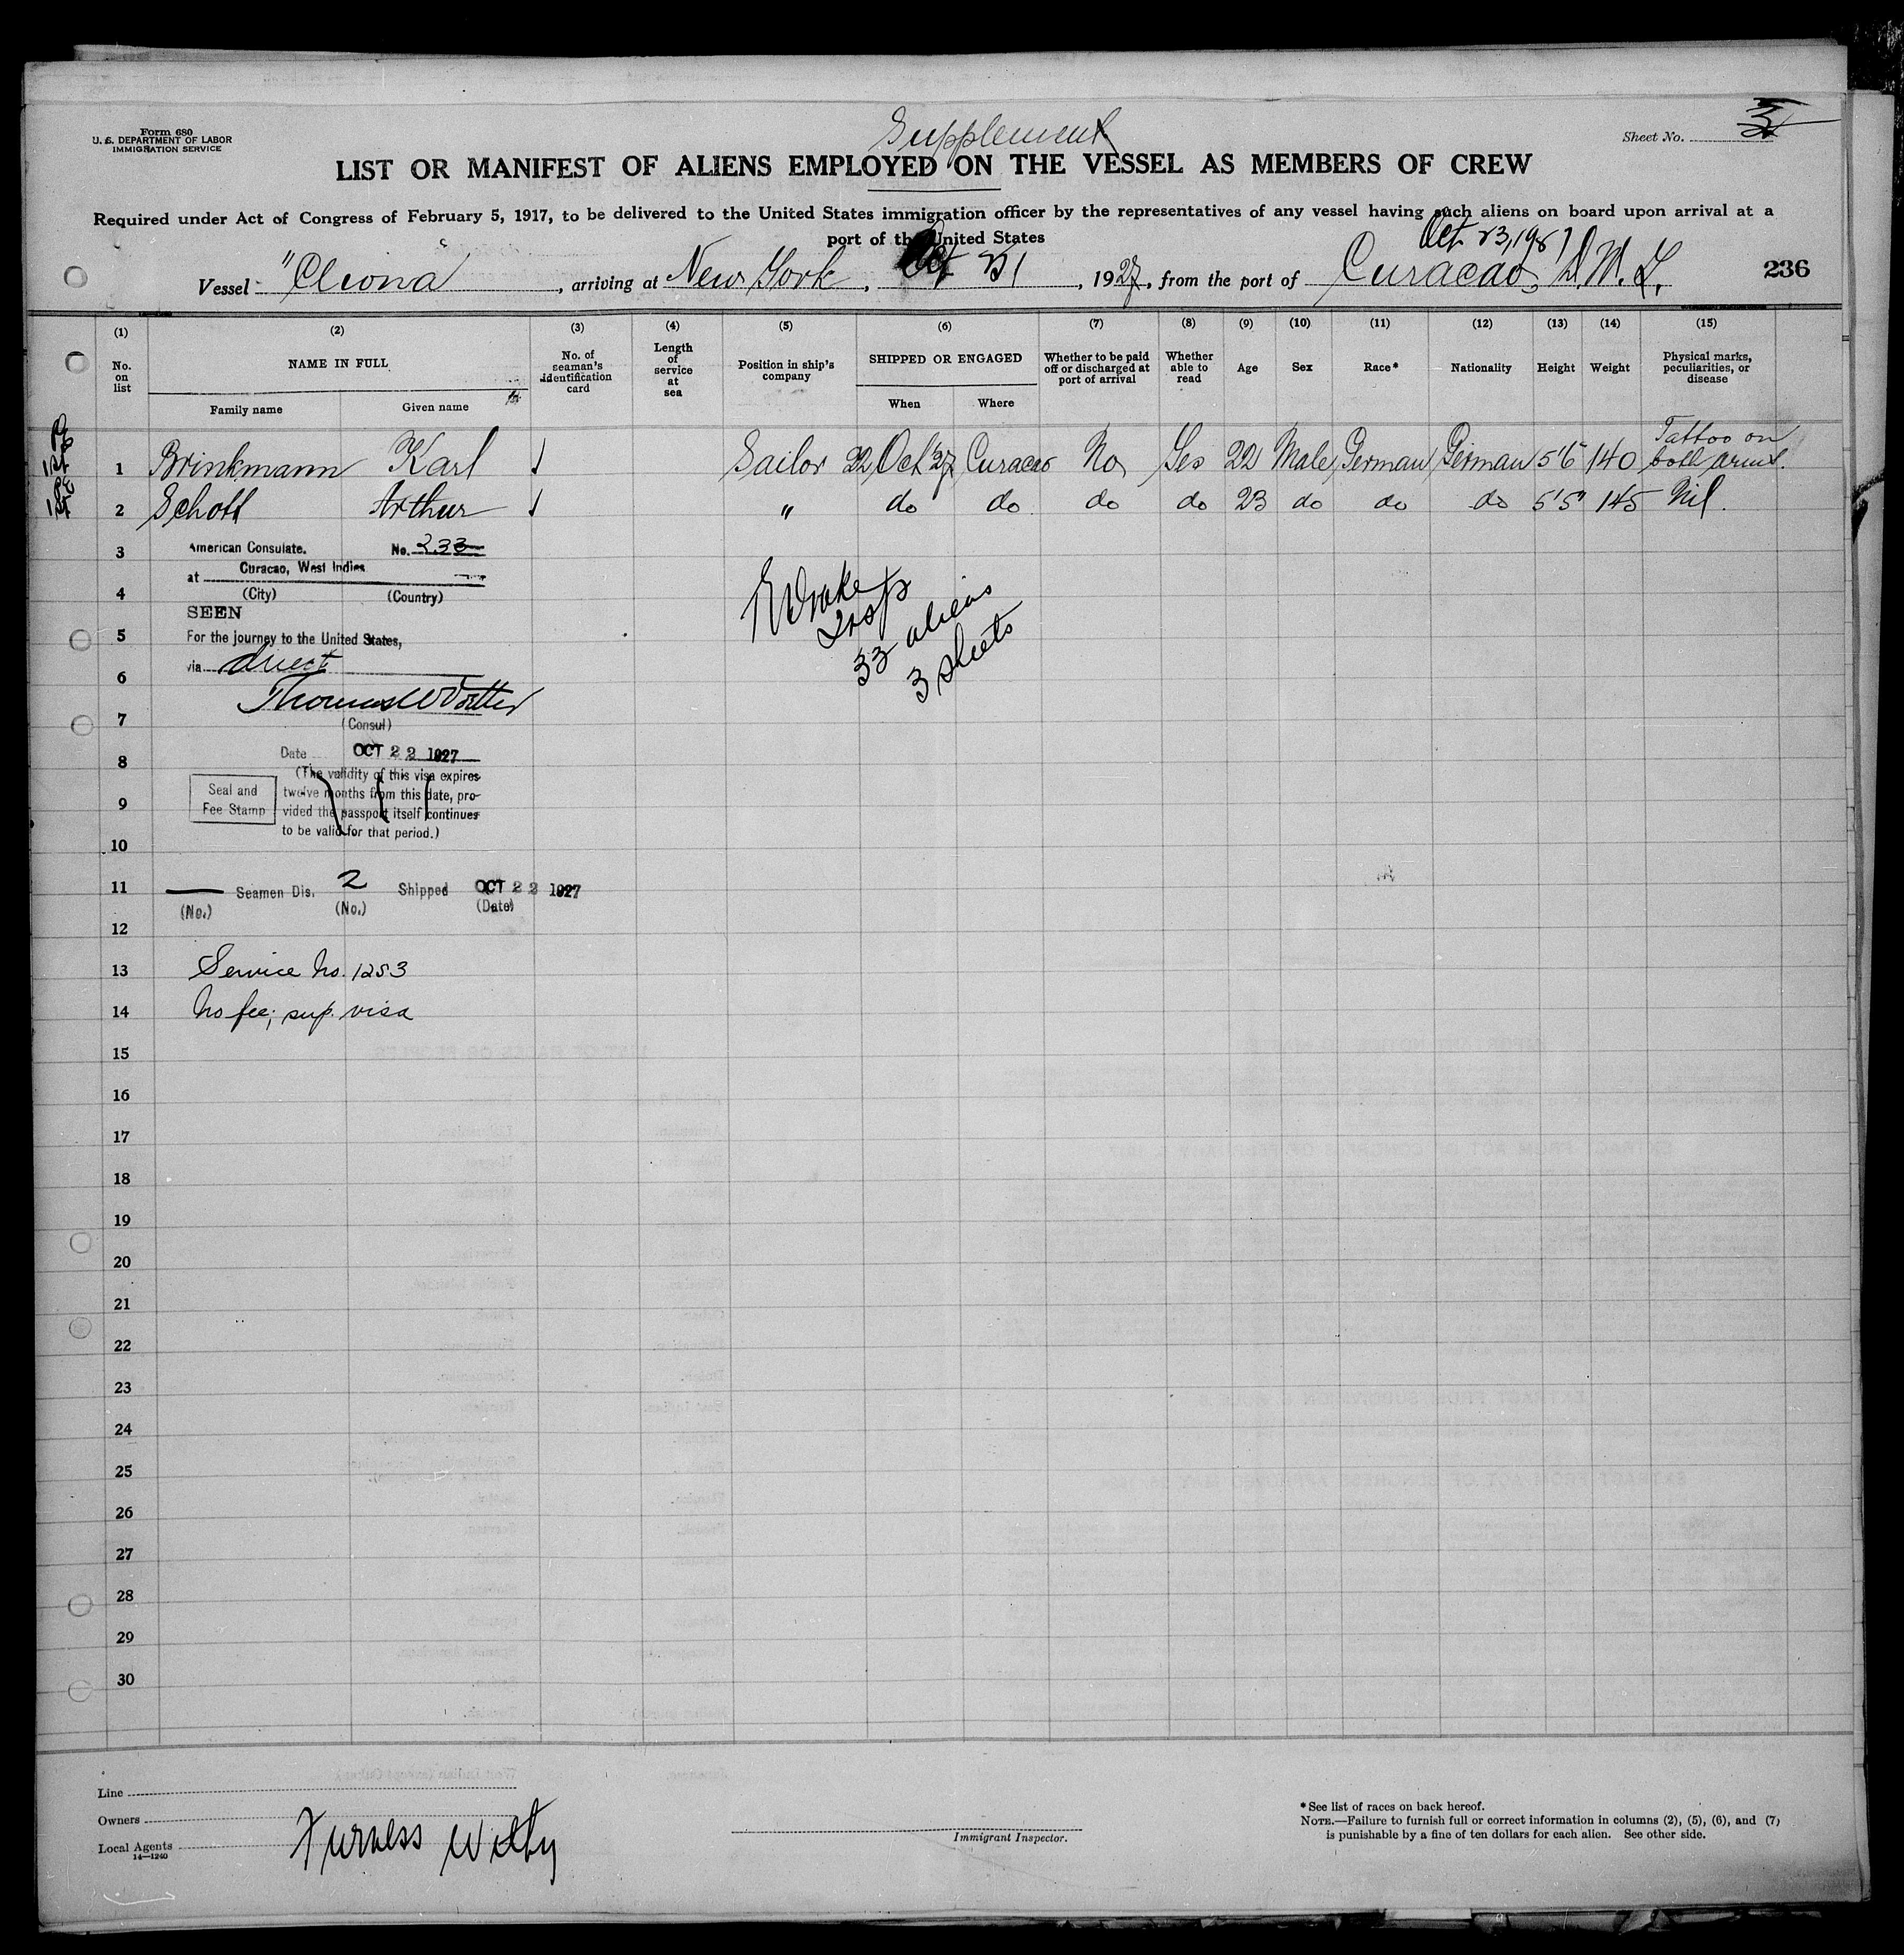 Form 680
U. S. DEPARTMENT OF LABOR
IMMIGRATION SERVICE
Supplement
Sheet No. 3
LIST OR MANIFEST OF ALIENS EMPLOYED ON THE VESSEL AS MEMBERS OF CREW
Required under Act of Congress of February 5, 1917, to be delivered to the United States immigration officer by the representatives of any vessel having such aliens on board upon arrival at a
port of the United States
Oct 23, 1927
Vessel "Cliona", arriving at New York, Oct 31, 1927, from the port of Curacao, D.W.I.
236
(1) (2) (3) (4) (5) (6) (7) (8) (9) (10) (11) (12) (13) (14) (15)
No. on list
NAME IN FULL
Family name Given name
No. of seaman's identification card
Length of service at sea
Position in ship's company
SHIPPED OR ENGAGED
When Where
Whether to be paid off or discharged at port of arrival
Whether able to read
Age
Sex
Race*
Nationality
Height
Weight
Physical marks, peculiarities, or disease
1 Brinkmann Karl Sailor 22 Oct '27 Curacao No Yes 22 Male German German 5'6" 140 Tattoo on both arms.
2 Schott Arthur " do do do do 23 do do do 5'5" 145 Nil.
3
4
5
6
7
8
9
10
11
12
13
14
15
16
17
18
19
20
21
22
23
24
25
26
27
28
29
30
American Consulate. No. 233
at Curacao, West Indies
(City) (Country)
SEEN
For the journey to the United States,
via direct
(Consul)
Date OCT 22 1927
(The validity of this visa expires
twelve months from this date, pro-
vided the passport itself continues
to be valid for that period.)
Seal and
Fee Stamp
Seamen Dis. 2 Shipped OCT 22 1927
(No.) (No.) (Date)
Service No. 1253
No fee; sup. visa
Drake
Insp
33 aliens
3 sheets
Line
Owners
Local Agents Furness Withy
14—1240
Immigrant Inspector.
* See list of races on back hereof.
NOTE.—Failure to furnish full or correct information in columns (2), (5), (6), and (7)
is punishable by a fine of ten dollars for each alien. See other side.